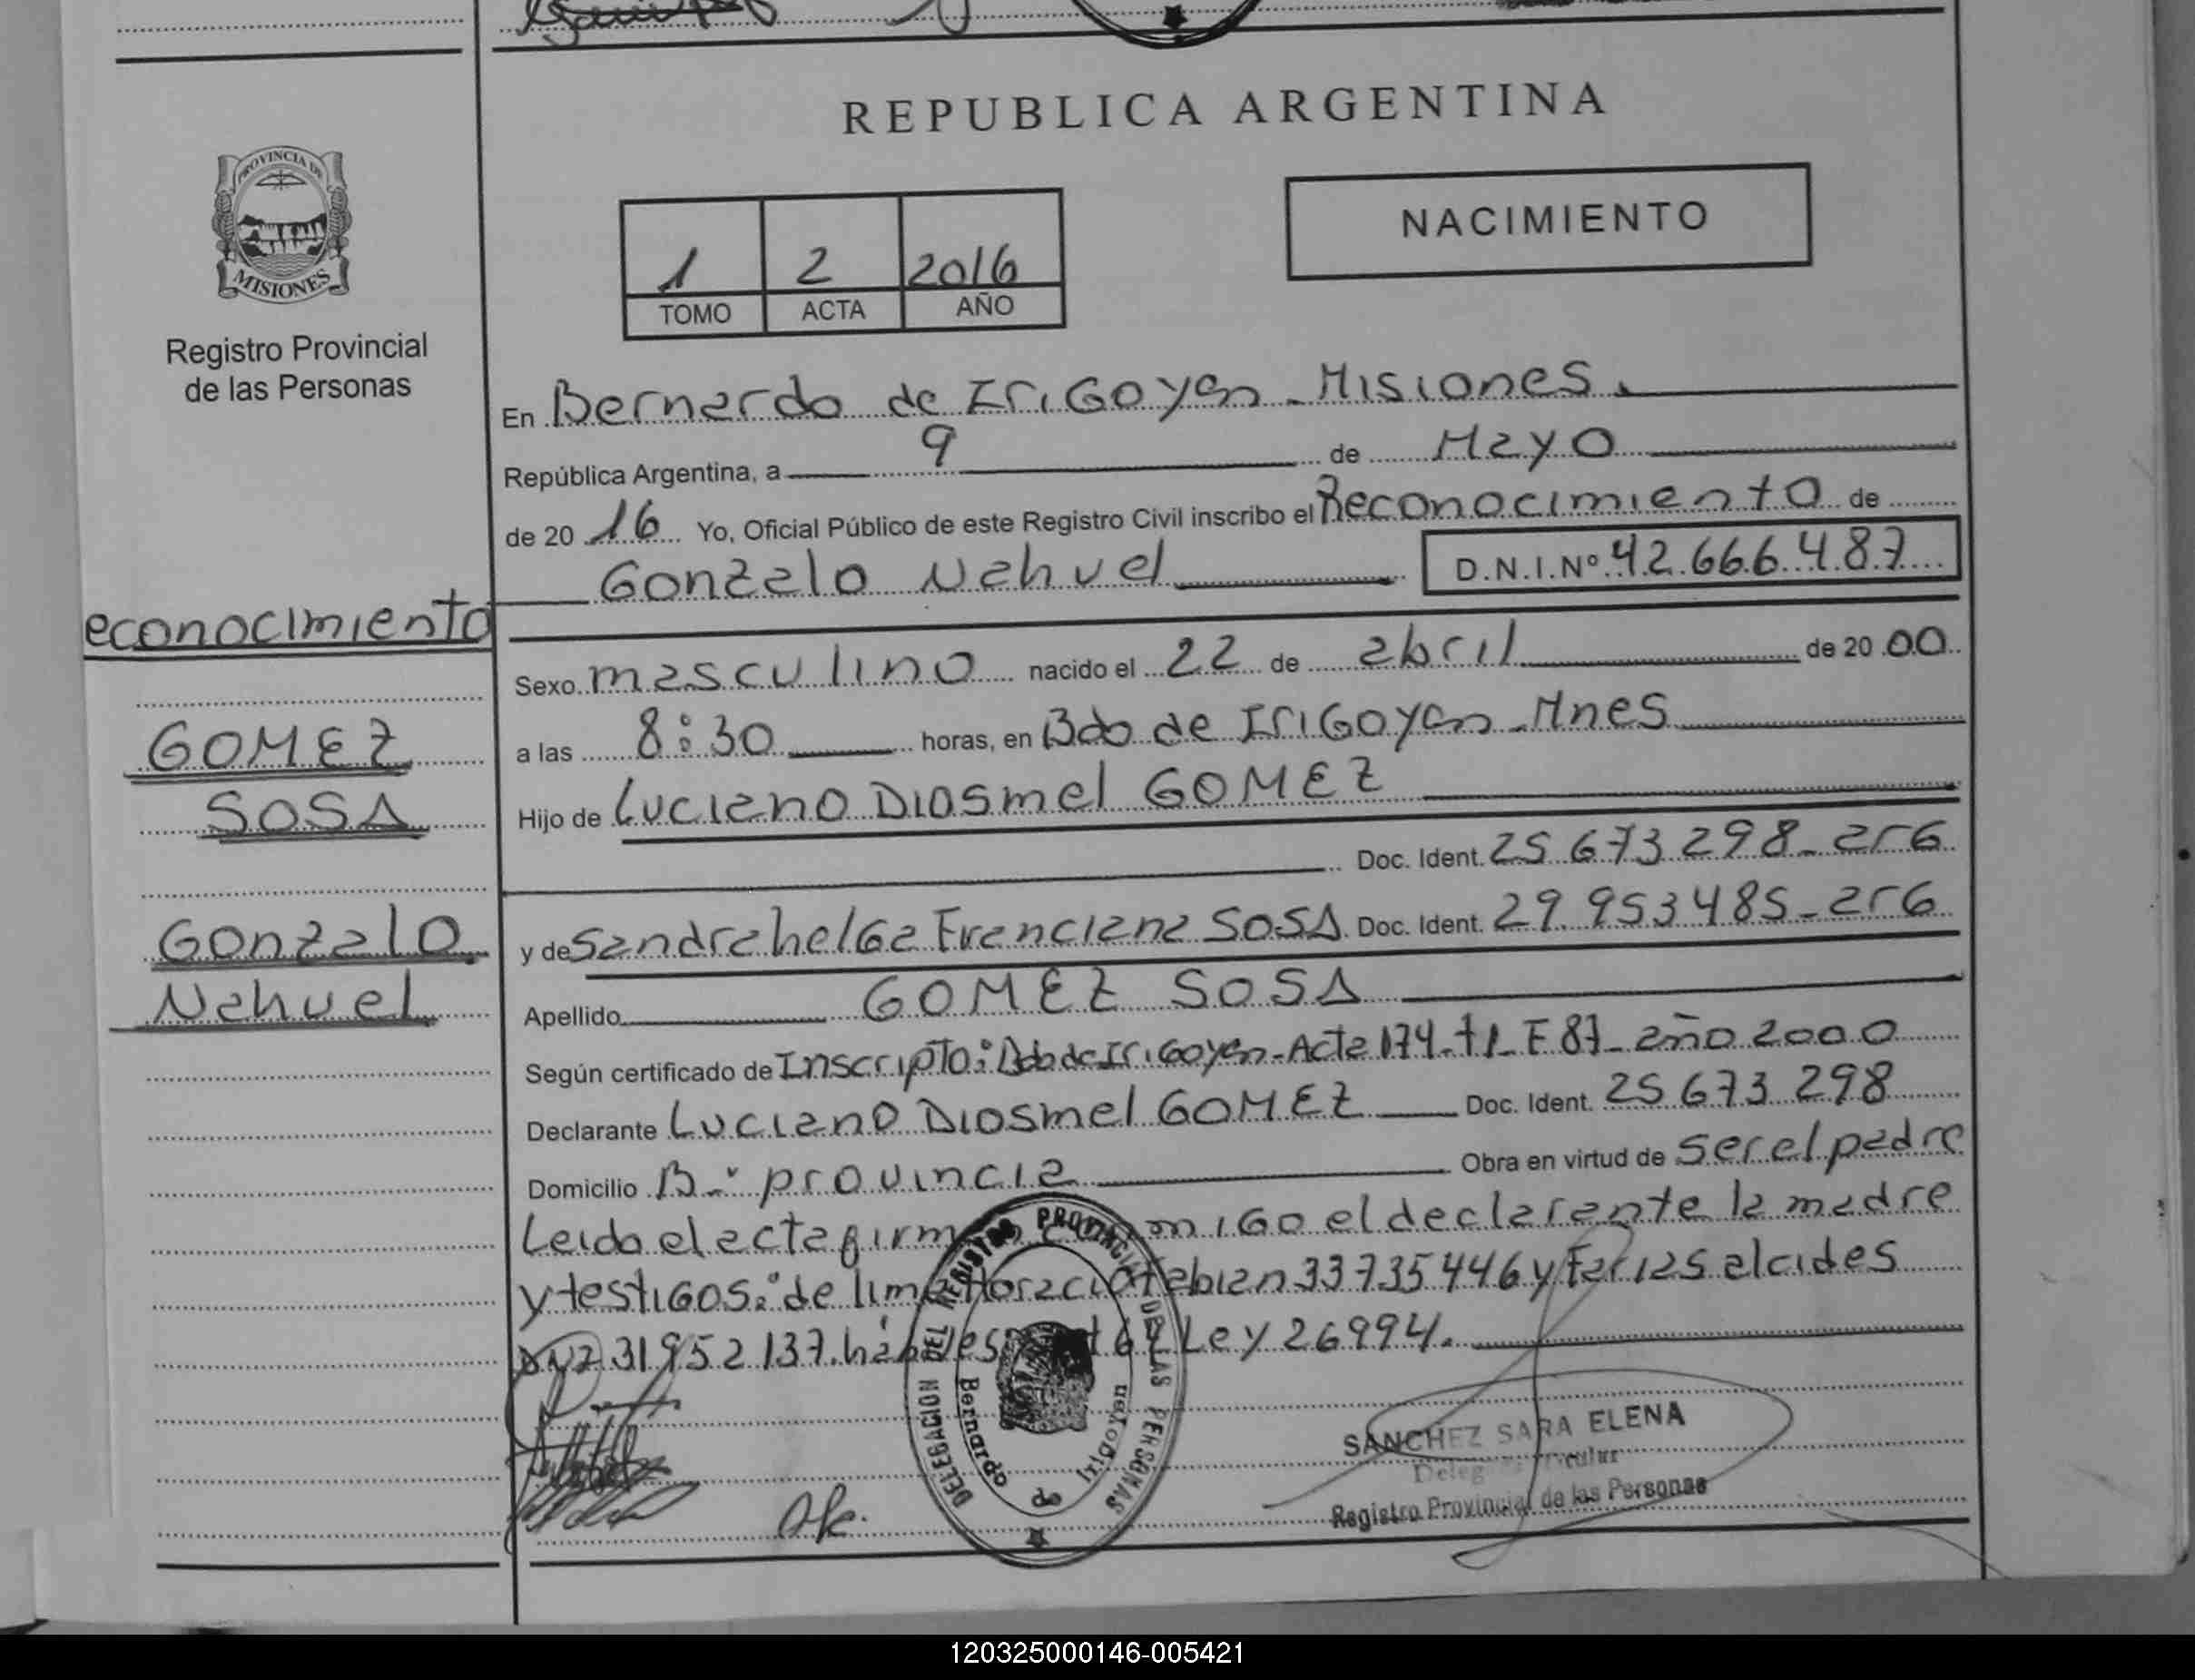 REPUBLICA ARGENTINA
PROVINCIA DE
MISIONES
Registro Provincial
de las Personas
NACIMIENTO
1 2 2016
TOMO ACTA AÑO
En Bernardo de IriGoyen - Misiones.
República Argentina, a 9 de Mayo
de 20 16 Yo, Oficial Público de este Registro Civil inscribo el Reconocimiento de
Gonzalo Nahuel D.N.I.Nº 42.666.487
econocimiento
GOMEZ
SOSA
Gonzalo
Nahuel
Sexo masculino nacido el 22 de abril de 20 00
a las 8:30 horas, en Bdo de IriGoyen - Mnes
Hijo de Luciano Diosmel GOMEZ
Doc. Ident. 25 673 298 - arG
y de Sandra helGa Franciana SOSA Doc. Ident. 29 953 485 - arG
Apellido GOMEZ SOSA
Según certificado de Inscripto: Bdo de IriGoyen - Acta 174 - t1 - F 87 - año 2000
Declarante Luciano Diosmel GOMEZ Doc. Ident. 25 673 298
Domicilio B-º provincia Obra en virtud de ser el padre
Leida el acta firm conmiGo el declarante la madre
y testiGos: de lima Horacio Fabian 33735446 y Farias alcides
31952137. habiles 64 Ley 26994.
DELEGACION DEL REGISTRO PROVINCIAL DE LAS PERSONAS
Bernardo de Irigoyen
SANCHEZ SARA ELENA
Registro Provincial de las Personas
120325000146-005421